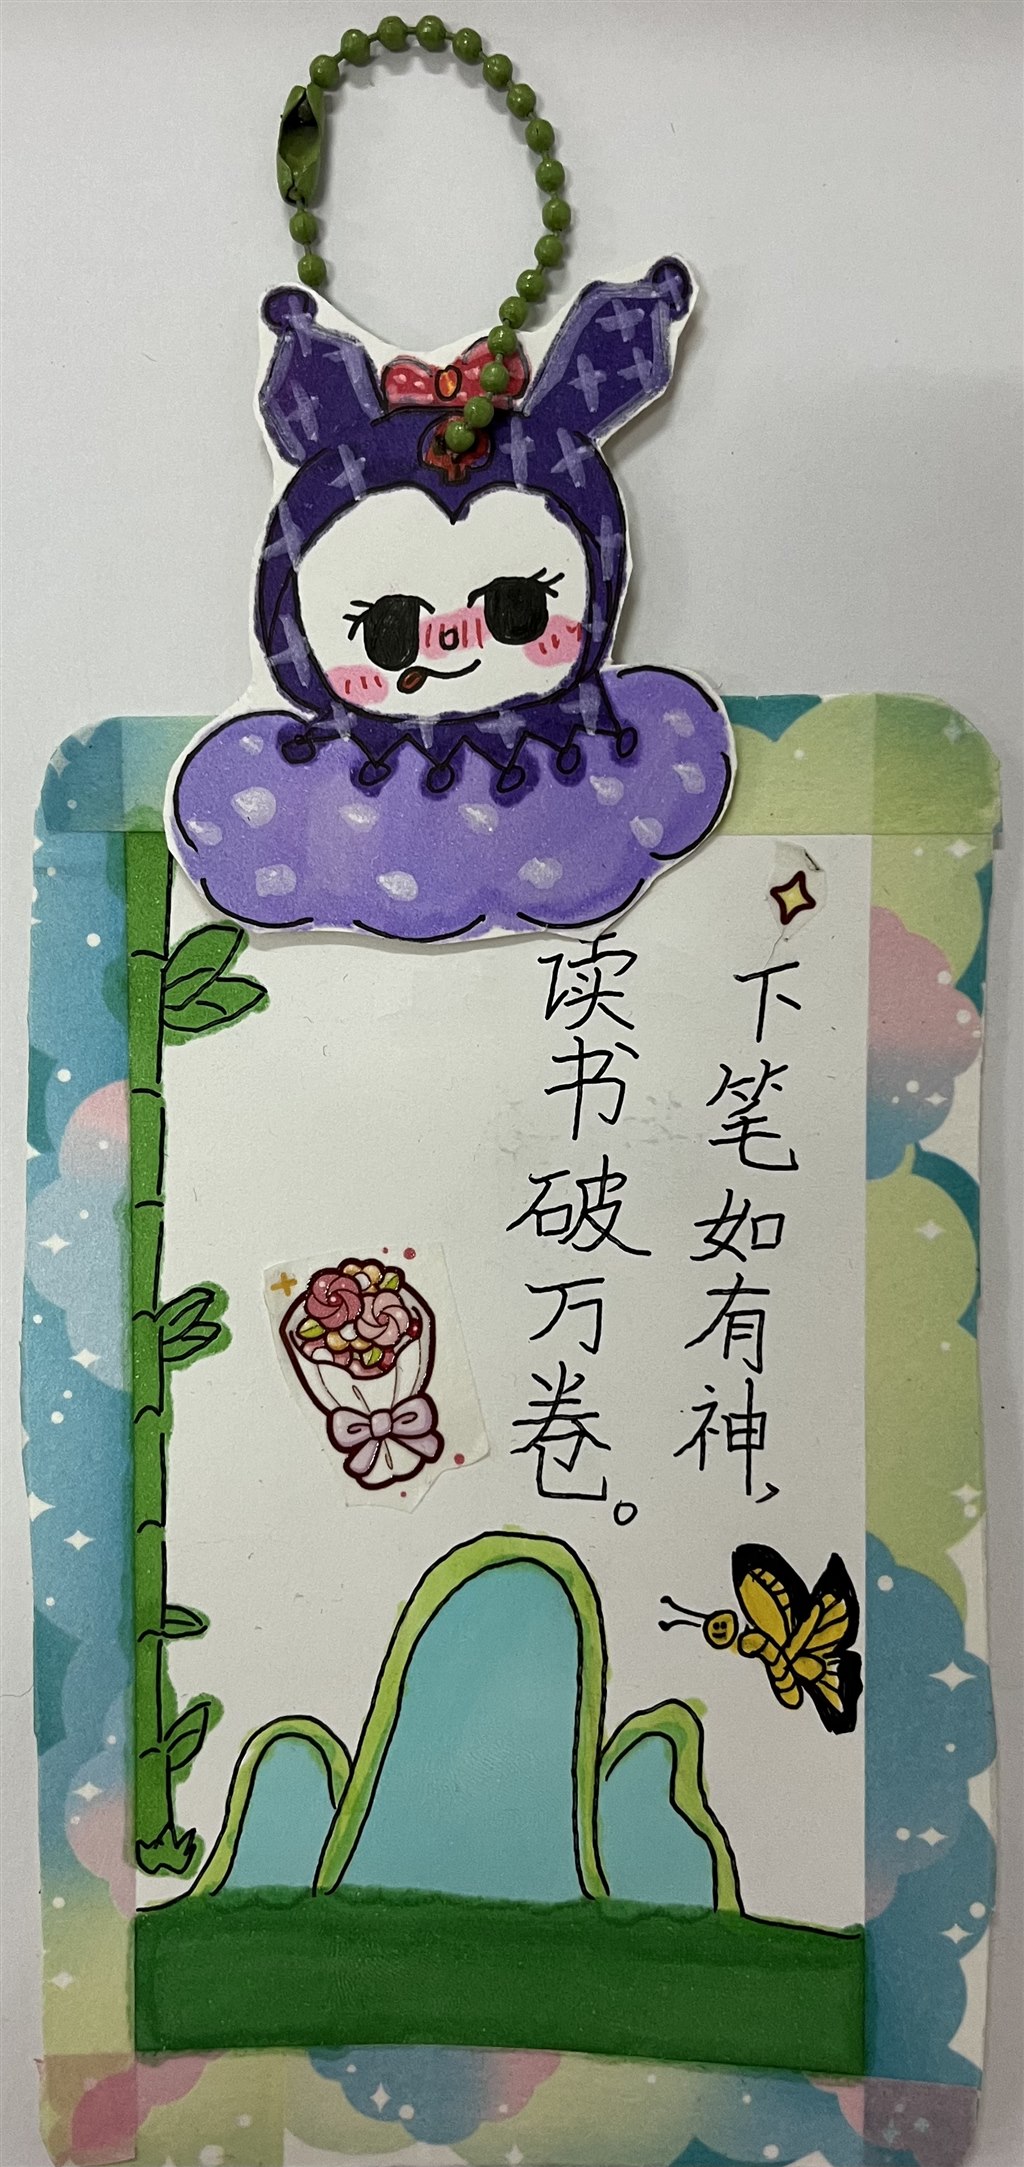 下笔如有神，
读书破万卷。